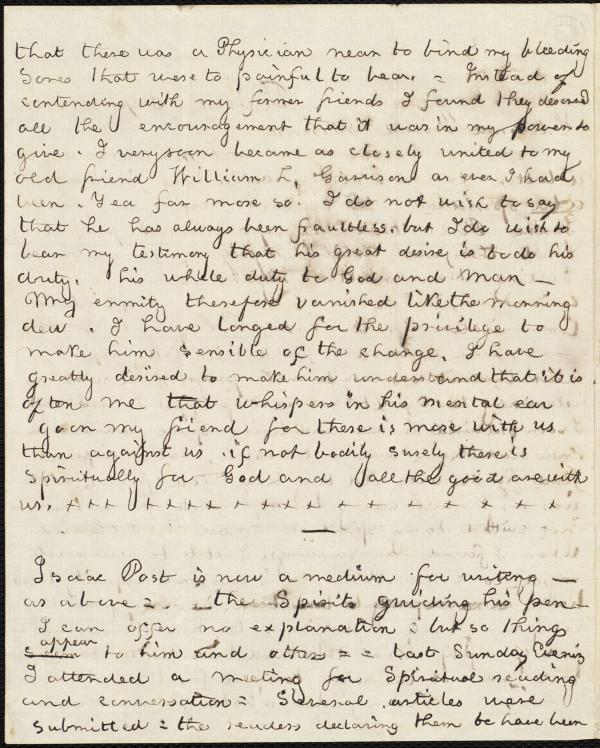 that there was a Physician near to bind my bleeding
Sores that were to painful to bear. = Instead of
contending with my former friends I found they deserved
all the encouragement that it was in my power to
give. I very soon became as closely united to my
old friend William L. Garrison as ever I had
been. Yea far more so. I do not wish to say
that he has always been faultless. but I do wish to
bear my testimony that his great desire is to do his
duty. his whole duty to God and Man —
My enmity therefore vanished like the morning
dew. I have longed for the privilege to
make him sensible of the change. I have
greatly desired to make him understand that it is
often me that whispers in his mental ear
go on my friend for there is more with us
than against us. if not bodily surely there is
Spiritually for God and all the good are with
us. x x x x x x x x x x x x x x x x x
—
Isaac Post is now a medium for writing —
as above = . — the Spirits guiding his pen —
I can offer no explanation : but so things
appear
seem to him and others = = Last Sunday Evening
I attended a meeting for Spiritual reading
and conversation = Several articles were
submitted = the readers declaring them to have been